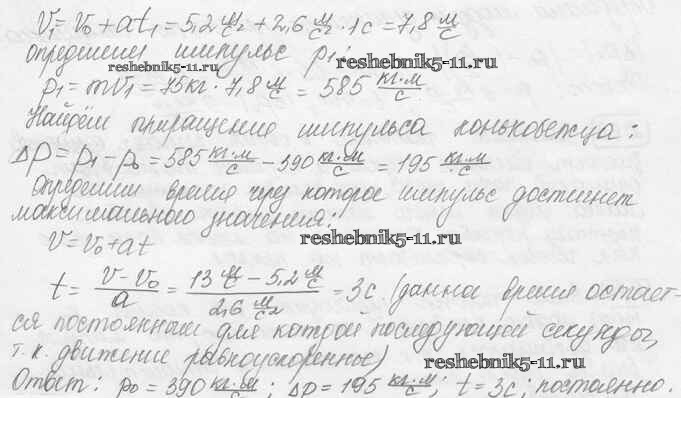 V₁ = V₀ + at₁ = 5,2 м/с² + 2,6 м/с² · 1с = 7,8 м/с
определим импульс p₁:
reshebnik5-11.ru
reshebnik5-11.ru
p₁ = mV₁ = 75кг · 7,8 м/с = 585 кг·м/с
Найдём приращение импульса конькобежца:
Δp = p₁ - p₀ = 585 кг·м/с - 390 кг·м/с = 195 кг·м/с
Определим время через которое импульс достигнет
максимального значения:
reshebnik5-11.ru
V = V₀ + at
t = (V - V₀)/a = (13 м/с - 5,2 м/с)/(2,6 м/с²) = 3с. (данное время остаёт-
ся постоянным для которой последующей секунды,
т.к. движение равноускоренное)
reshebnik5-11.ru
Ответ: p₀ = 390 кг·м/с; Δp = 195 кг·м/с; t = 3с; постоянно.